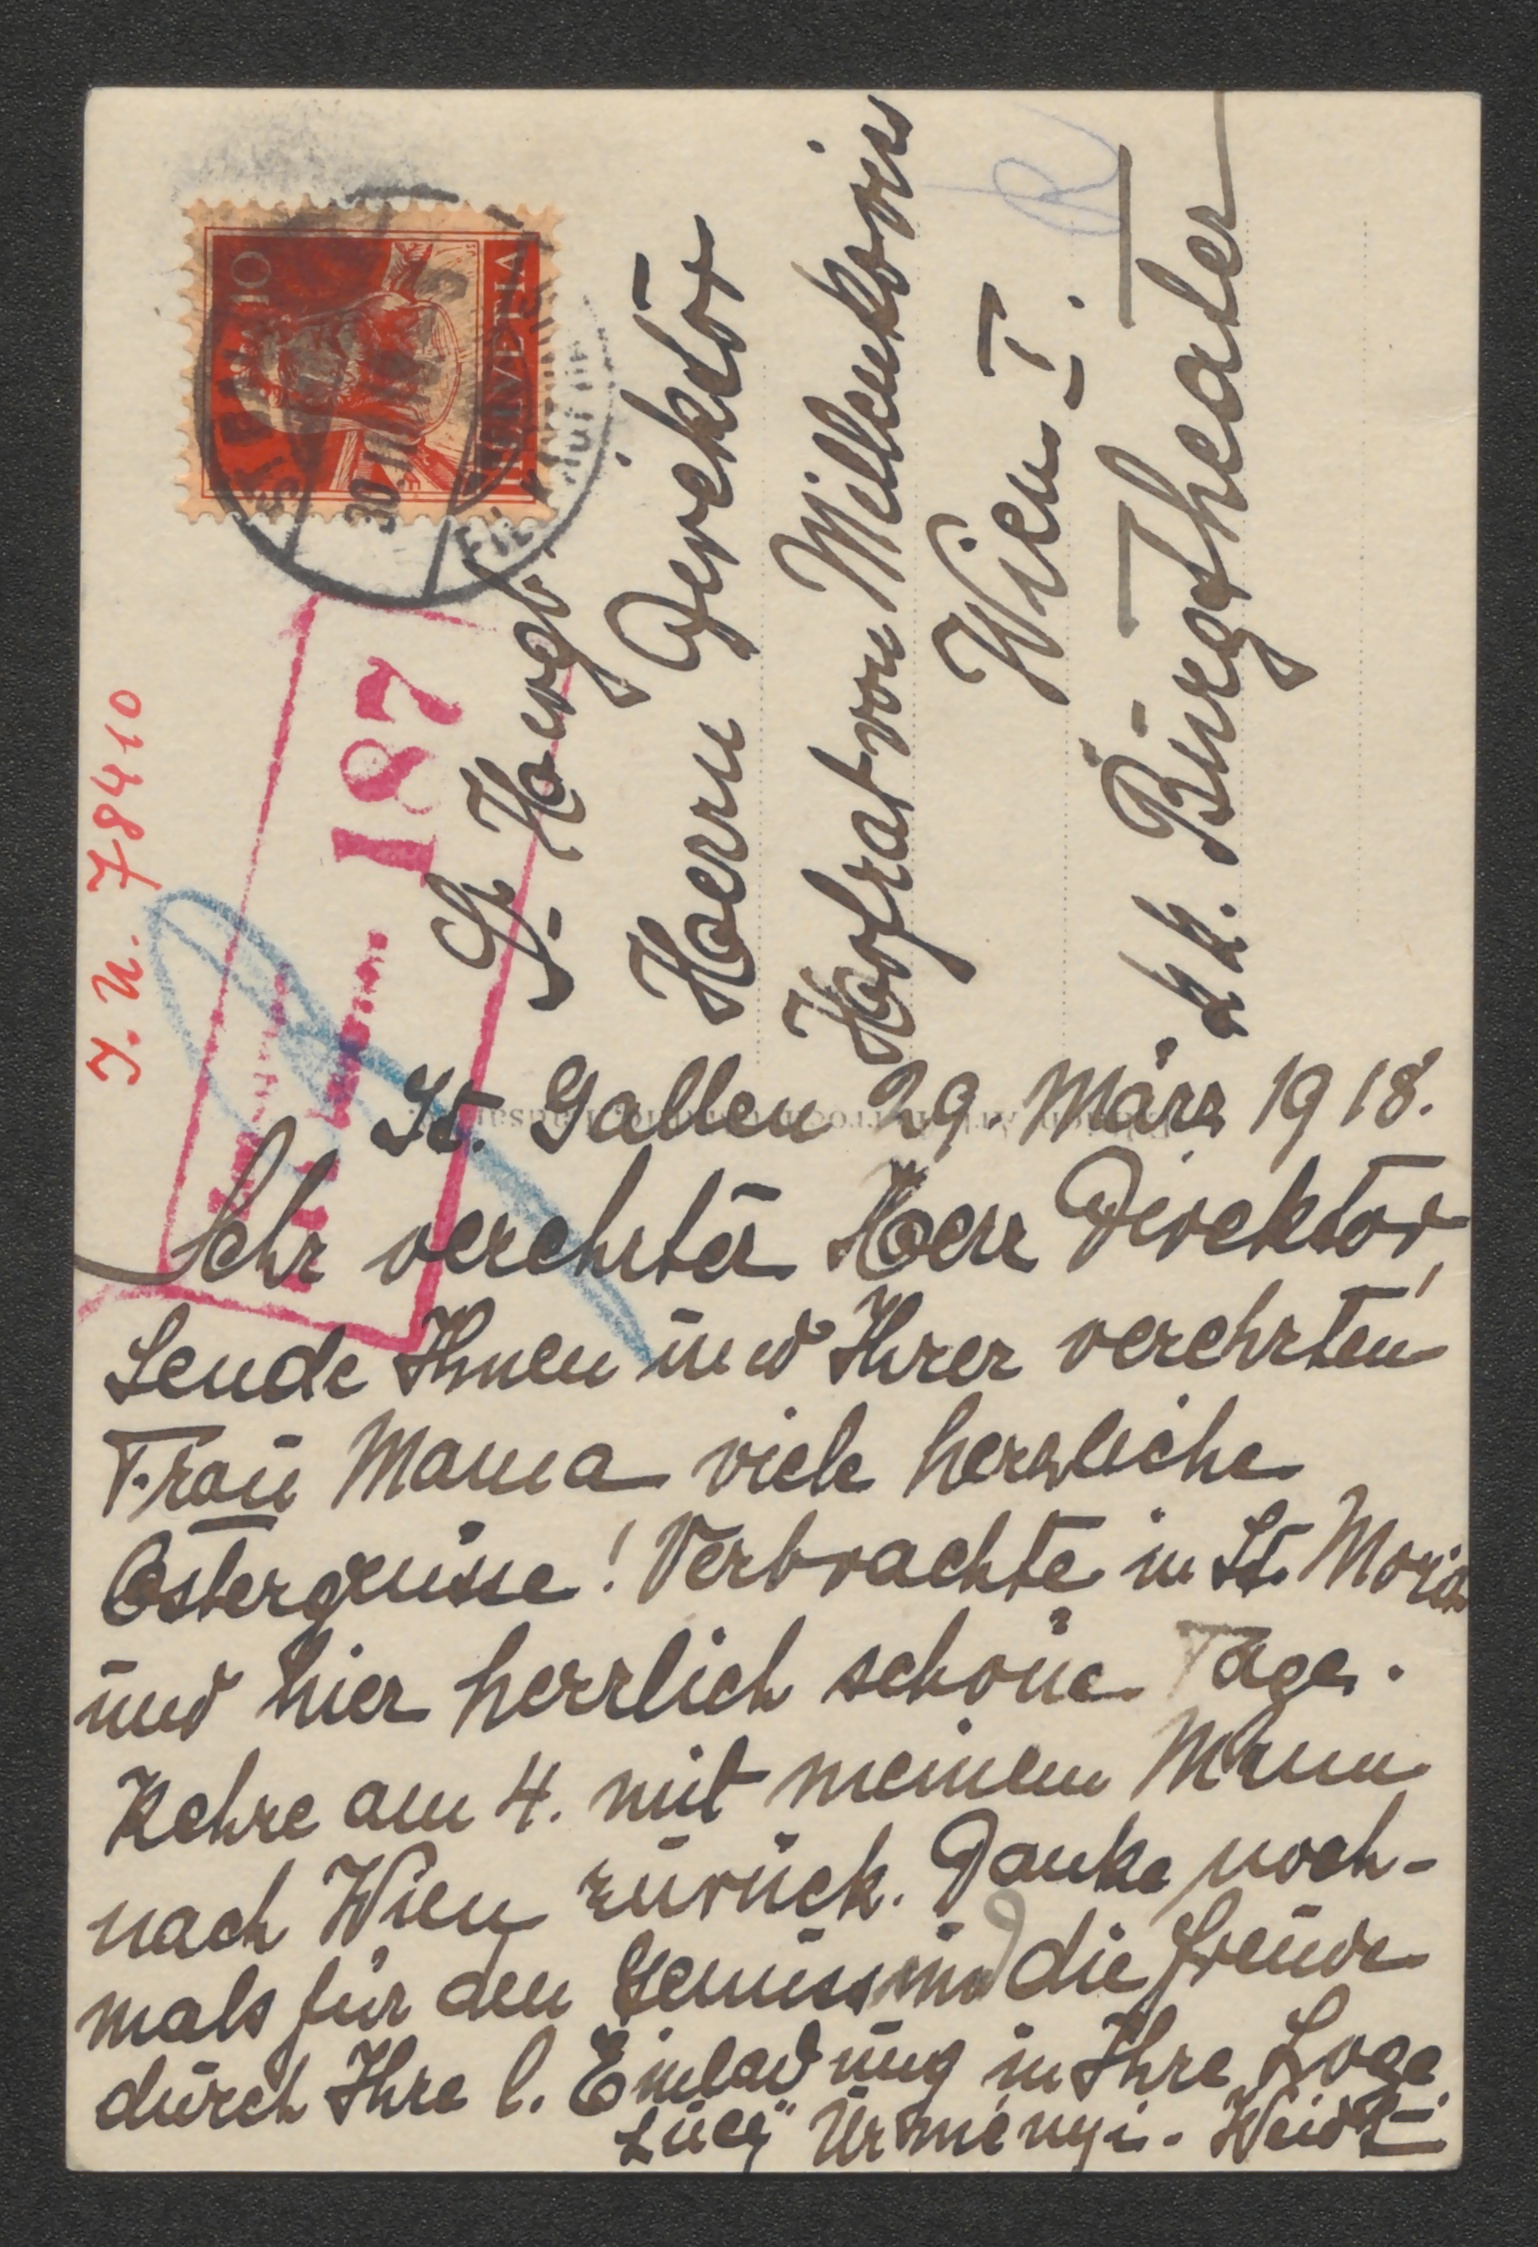 I. N. 78410
187
10
HELVETIA
30. III
Sr Hwgb.
Herrn Direktor
Hofrat von Millenkovics
Wien I.
k. k. Burgtheater
R
St. Gallen 29. März 1918.
Sehr verehrter Herr Direktor,
Sende Ihnen und Ihrer verehrten
Frau Mama viele herzliche
Ostergrüsse! Verbrachte in St. Moriz
und hier herrlich schöne Tage.
Kehre am 4. mit meinem Mann
nach Wien zurück. Danke noch-
mals für den Genuss und die Freude
durch Ihre l. Einladung in Ihre Loge.
Lucy Ürményi-Weidt